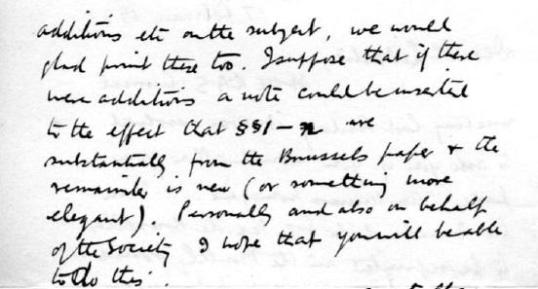 additions etc on the subject, we would
glad print these too. I suppose that if there
were additions a note could be inserted
to the effect that §§1 – n are
substantially from the Brussels paper & the
remainder is new (or something more
elegant). Personally and also on behalf
of the Society I hope that you will be able
to do this.